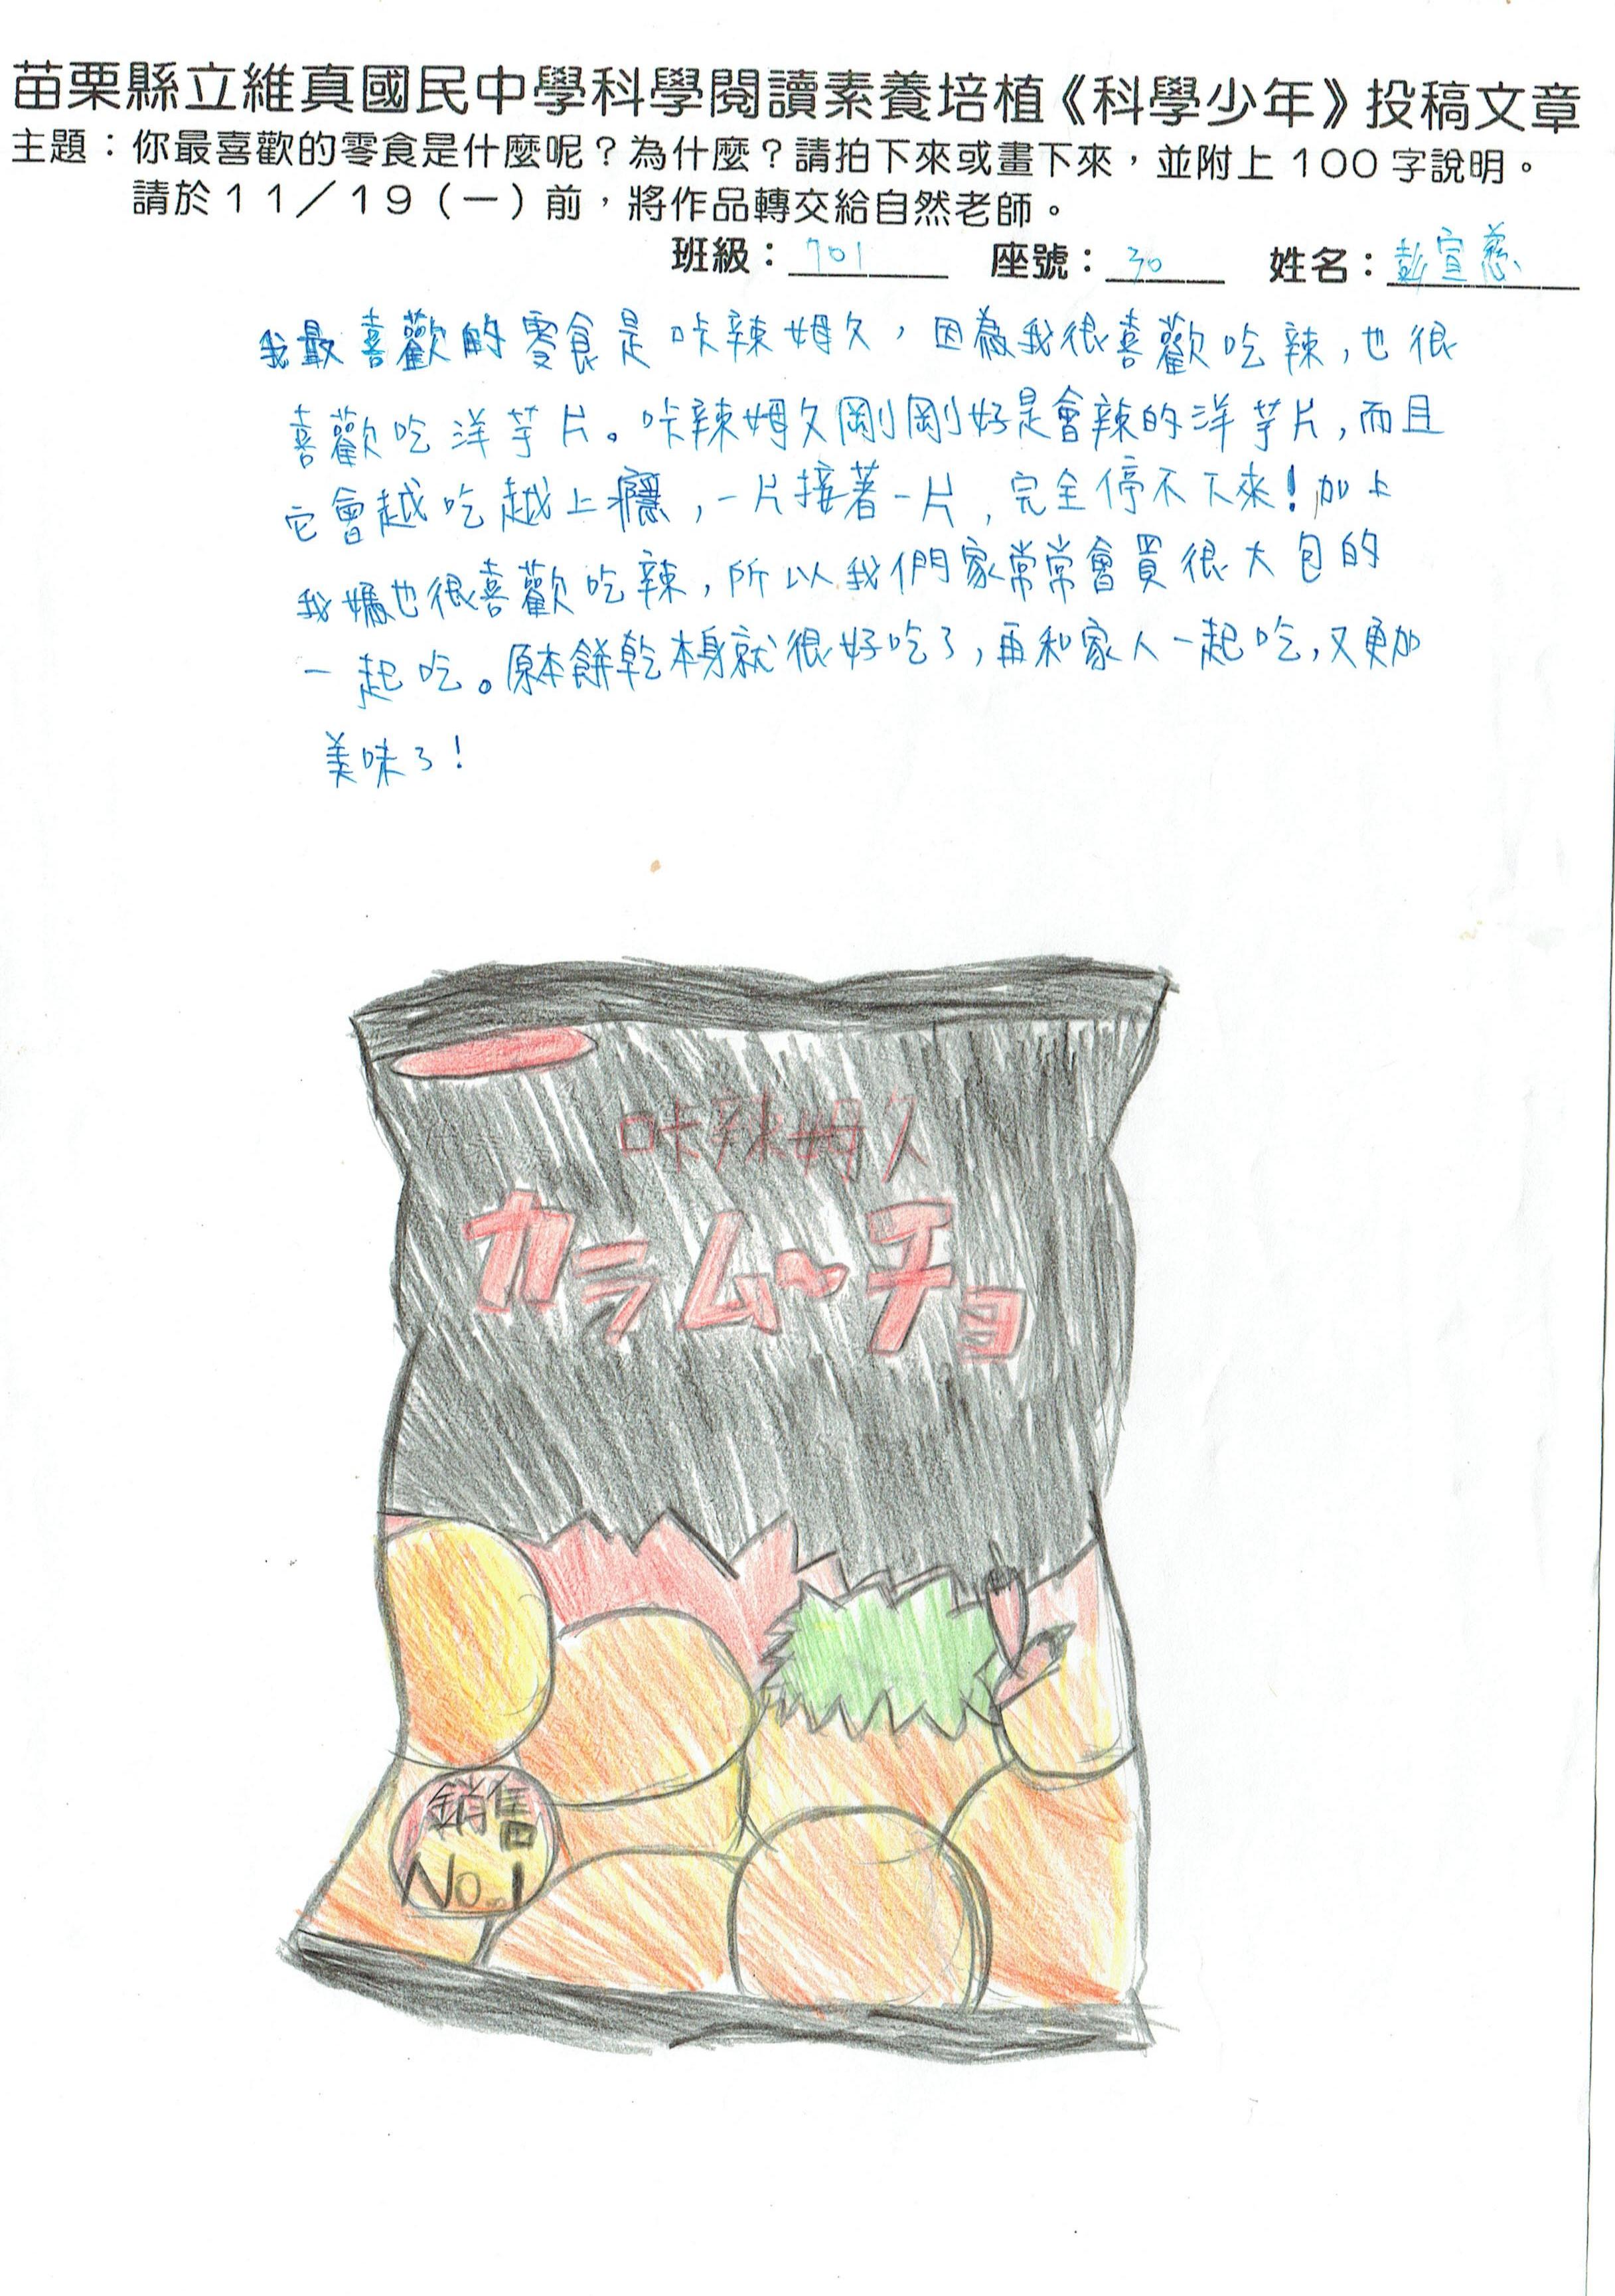 苗栗縣立維真國民中學科學閱讀素養培植《科學少年》投稿文章
主題：你最喜歡的零食是什麼呢？為什麼？請拍下來或畫下來，並附上100字說明。
請於11／19（一）前，將作品轉交給自然老師。
班級：701 座號：30 姓名：彭宣慈
我最喜歡的零食是咔辣姆久，因為我很喜歡吃辣，也很
喜歡吃洋芋片。咔辣姆久剛剛好是會辣的洋芋片，而且
它會越吃越上癮，一片接著一片，完全停不下來！加上
我媽也很喜歡吃辣，所以我們家常常會買很大包的
一起吃。原本餅乾本身就很好吃了，再和家人一起吃，又更加
美味了！
咔辣姆久
カラムーチョ
銷售
No.1